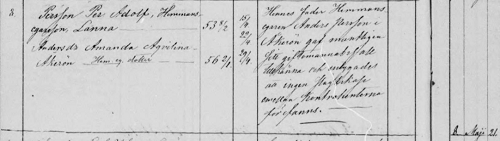 8. Persson Per Adolf, Hemmans-
egareson, Lanna 53 8/2
Andersdr Amanda Agrelina
Åkerön Hem. eg. dotter 56 2/1
15/4
22/4
29/4
Hennes fader Hemmans-
egaren Anders Persson i
Åkerön gaf muntligen
sitt giftomannabifall
tillkänna och intygades
att ingen släktskap
emellan kontrahenterna
förefanns.
D. Maji 21.